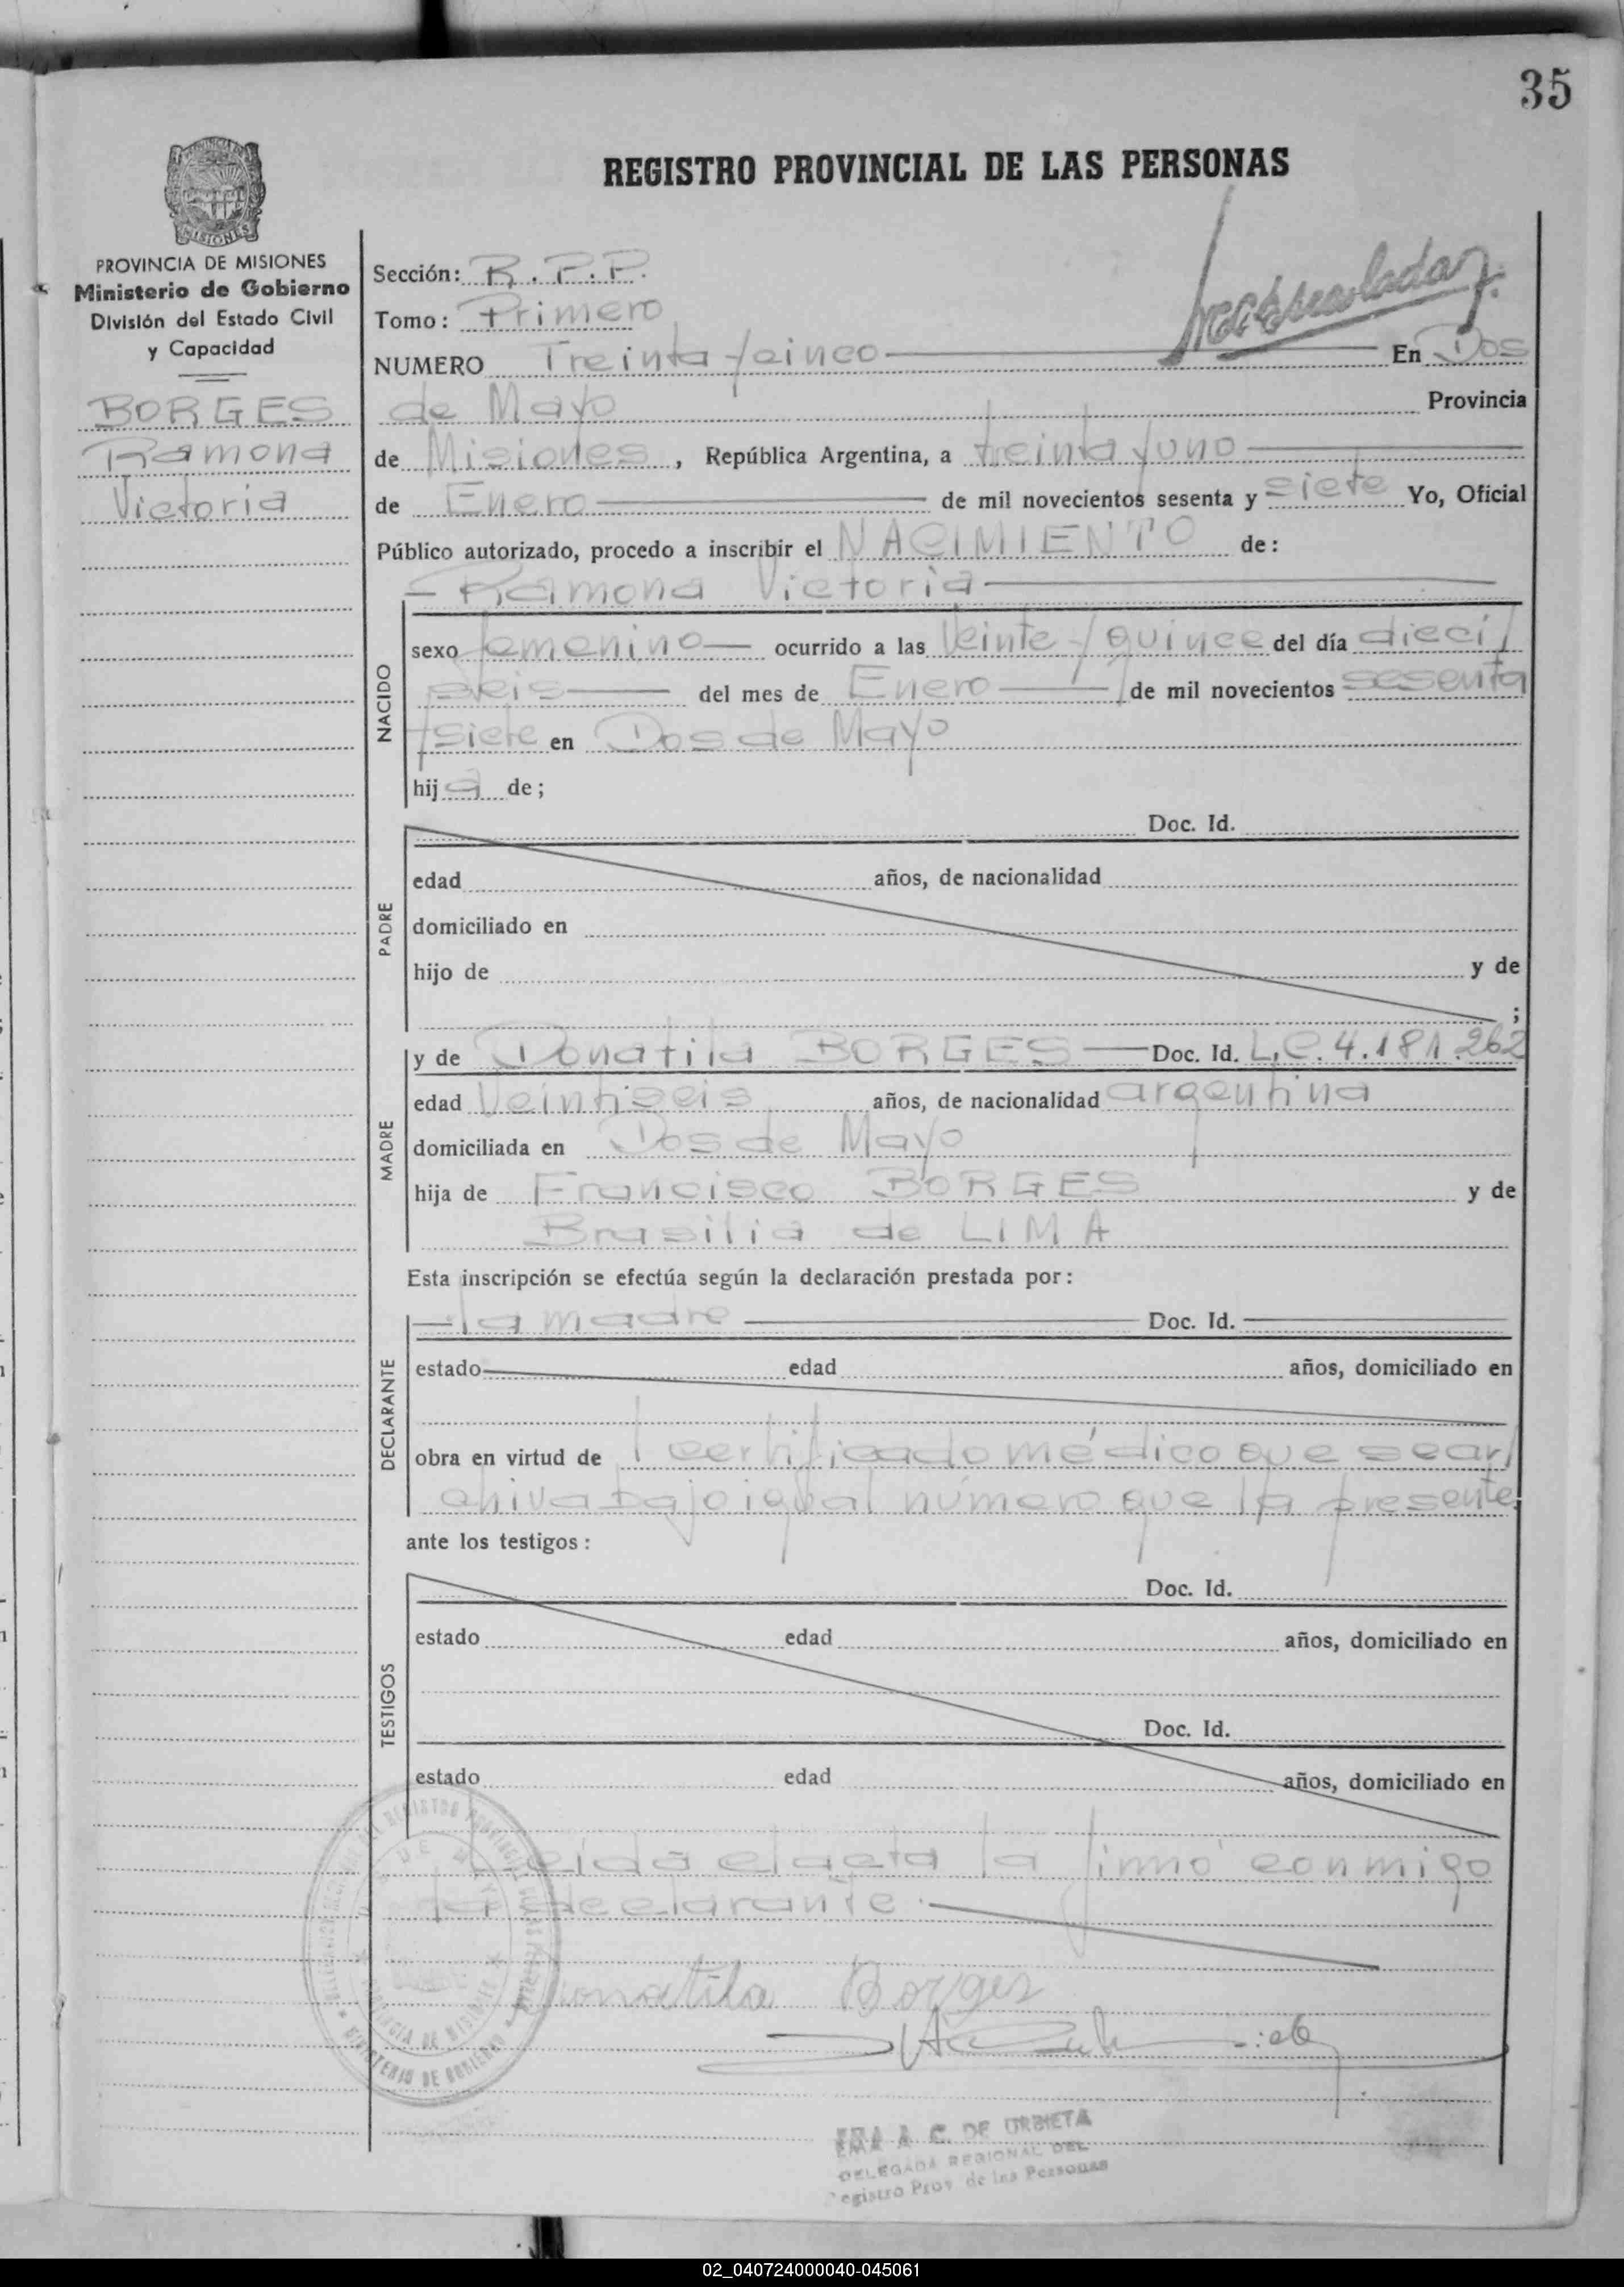 35
REGISTRO PROVINCIAL DE LAS PERSONAS
MISIONES
PROVINCIA DE MISIONES
Ministerio de Gobierno
División del Estado Civil
y Capacidad
BORGES
Ramona
Victoria
Sección: R.P.P.
Tomo: Primero
NUMERO Treinta y cinco En Dos
de Mayo Provincia
de Misiones, República Argentina, a treinta y uno
de Enero de mil novecientos sesenta y siete Yo, Oficial
Público autorizado, procedo a inscribir el NACIMIENTO de:
Ramona Victoria
NACIDO
sexo femenino ocurrido a las veinte y quince del día dieci/
seis del mes de Enero de mil novecientos sesenta
y siete en Dos de Mayo
hija de;
PADRE
Doc. Id.
edad años, de nacionalidad
domiciliado en
hijo de y de
;
MADRE
y de Donatila BORGES Doc. Id. L.C. 4.181.262
edad Veintiseis años, de nacionalidad argentina
domiciliada en Dos de Mayo
hija de Francisco BORGES y de
Brasilia de LIMA
Esta inscripción se efectúa según la declaración prestada por:
DECLARANTE
la madre Doc. Id.
estado edad años, domiciliado en
obra en virtud de certificado médico que se ar/
chiva bajo igual número que la presente
ante los testigos:
TESTIGOS
Doc. Id.
estado edad años, domiciliado en
Doc. Id.
estado edad años, domiciliado en
Leída el acta la firmó conmigo
la declarante.
Donatila Borges
MINISTERIO DE GOBIERNO
PROVINCIA DE MISIONES
A. C. DE URBIETA
DELEGADA REGIONAL DEL
Registro Prov. de las Personas
02_040724000040-045061